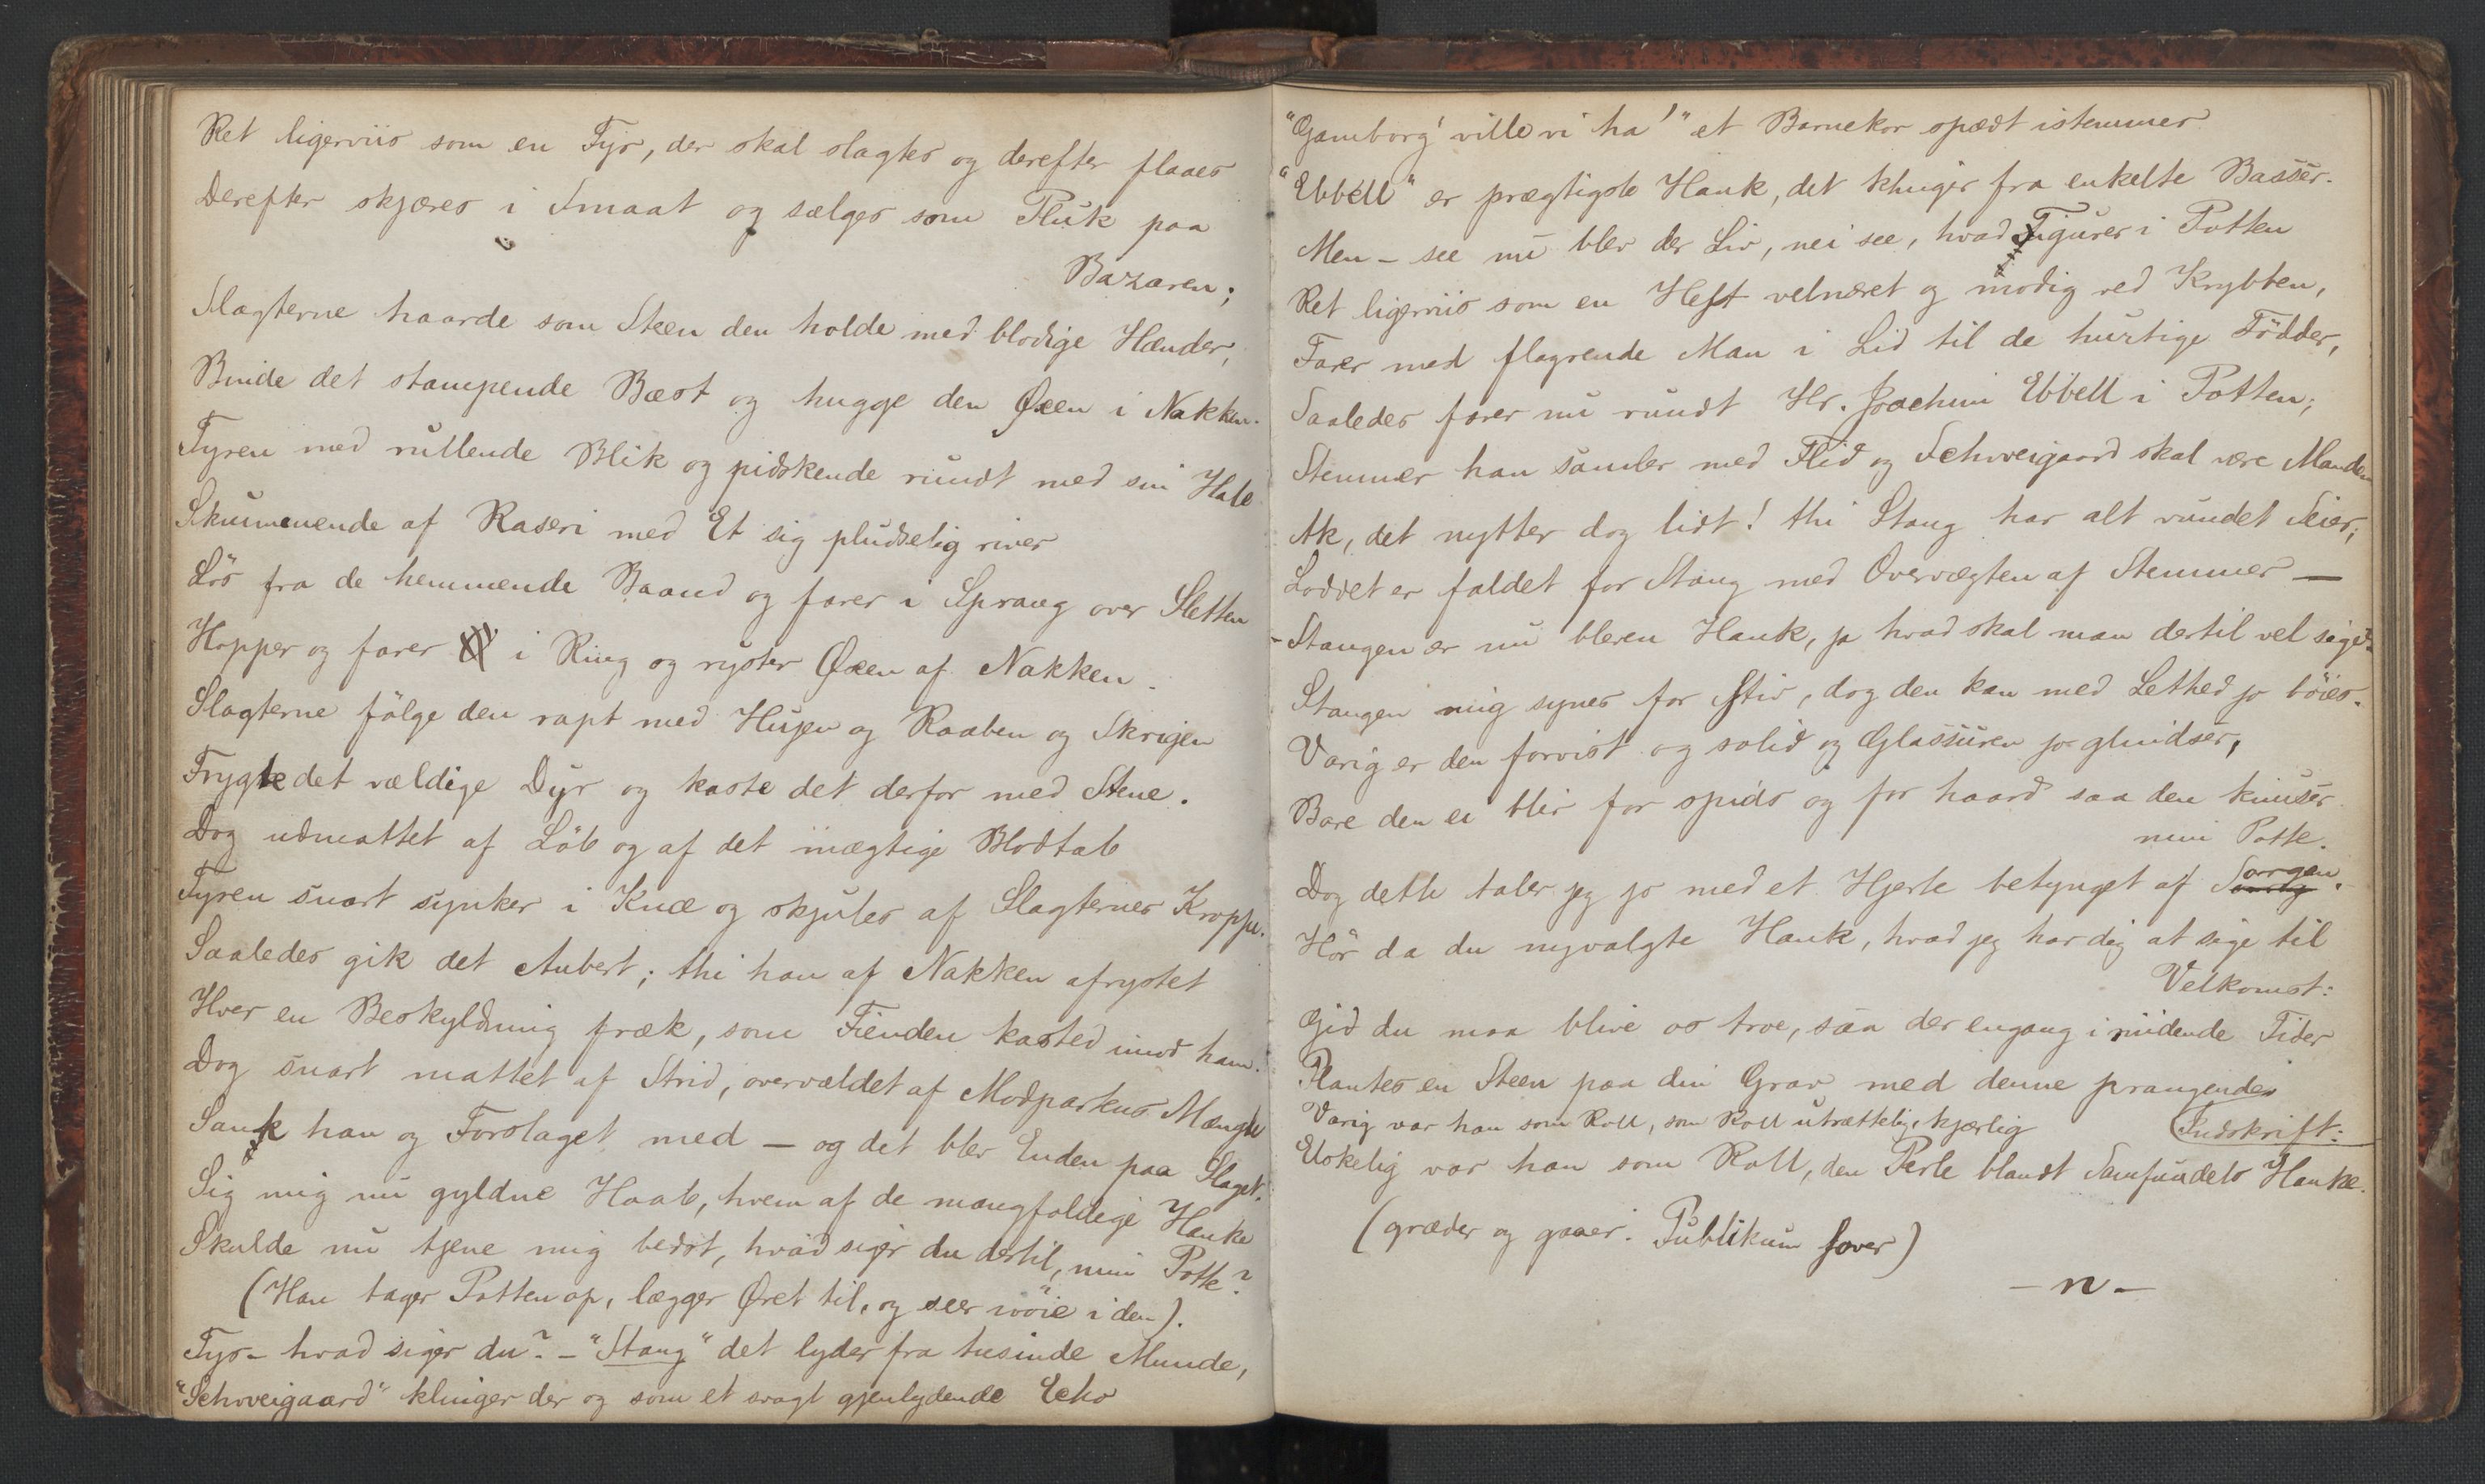 Ret ligerviis som en Tyr, der skal slagtes og derefter flaaes
Derefter skjæres i Smaat og sælges som Pluk paa
Bazaren;
Slagterne haarde som Steen den holde med blodige Hænder,
Binde det stampende Bæst og hugge den Øxen i Nakken.
Tyren med rullende Blik og pidskende rundt med sin Hale
Skummende af Raseri med Et sig pludselig river
Løs fra de hemmende Baand og farer i Sprang over Sletten
Hopper og farer i Ring og ryster Øxen af Nakken.
Slagterne fölge den rapt med Hujen og Raaben og Skrigen
Frygte det vældige Dyr og kaste det derfor med Stene.
Dog udmattet af Löb og af det mægtige Blodtab
Tyren snart synker i Knæ og skjules af Slagternes Kroppe.
Saaledes gik det Aubert; thi han af Nakken afrystet
Hver en Beskyldning fræk, som Fienden kasted imod ham.
Dog snart mattet af Strid, overvældet af Modpartens Mængde
Sank han og Forslaget med – og det blev Enden paa Slaget.
Sig mig nu gyldne Haab, hvem af de mangfoldige Hanke
Skulde nu tjene mig bedst, hvad siger du dertil, min Potte?
(Han tager Potten op, lægger Øret til, og seer nöie i den).
Tys – hvad siger du? – "Stang" det lyder fra tusinde Munde,
"Schweigaard" klinger der og som et svagt gjenlydende Echo
"Gamborg' ville vi ha'" et Barnekor spædt istemmer
"Ebbell" er prægtigste Hank, det klinger fra enkelte Basser.
Men – see nu blev der Liv, nei see, hvad Figurer i Potten
Ret ligerviis som en Hest velnæret og modig ved Krybben,
Farer med flagrende Man i Lid til de hurtige Födder,
Saaledes farer nu rundt Hr. Joachim Ebbell i Potten;
Stemmer han samler med Flid og Schweigaard skal være Manden
Ak, det nytter dog lidt! thi Stang har alt vundet Seier;
Loddet er faldet for Stang med Overvægten af Stemmer –
– Stangen er nu bleven Hank, ja hvad skal man dertil vel sige?
Stangen mig synes for stiv, dog den kan med Lethed jo böies.
Varig er den forvist og solid og Glassuren jo glindser,
Bare den ei blir for spids og for haard saa den knuser
min Potte.
Dog dette taler jeg jo med et Hjerte betynget af Sorrgen.
Hör da du nyvalgte Hank, hvad jeg har dig at sige til
Velkomst:
Gid du maa blive os tro, saa der engang i rindende Tider
Plantes en Steen paa din Grav med denne prangende
Indskrift:
Varig var han som Roll, som Roll utrættelig, kjærlig
Elskelig var han som Roll, den Perle blandt Samfundets Hanke.
(græder og gaaer. Publikum sover)
– n –